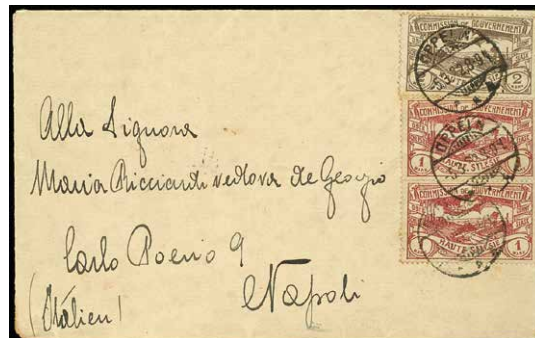 COMMISSION DE GOUVERNEMENT
2
OPPELN
COMMISSION DE GOUVERNEMENT
1
OPPELN
HAUTE SILÉSIE
COMMISSION DE GOUVERNEMENT
HAUTE SILÉSIE
1
Alla Signora
Maria Ricciardi vedova de Georgio
Carlo Poerio 9
Napoli
(Italien)